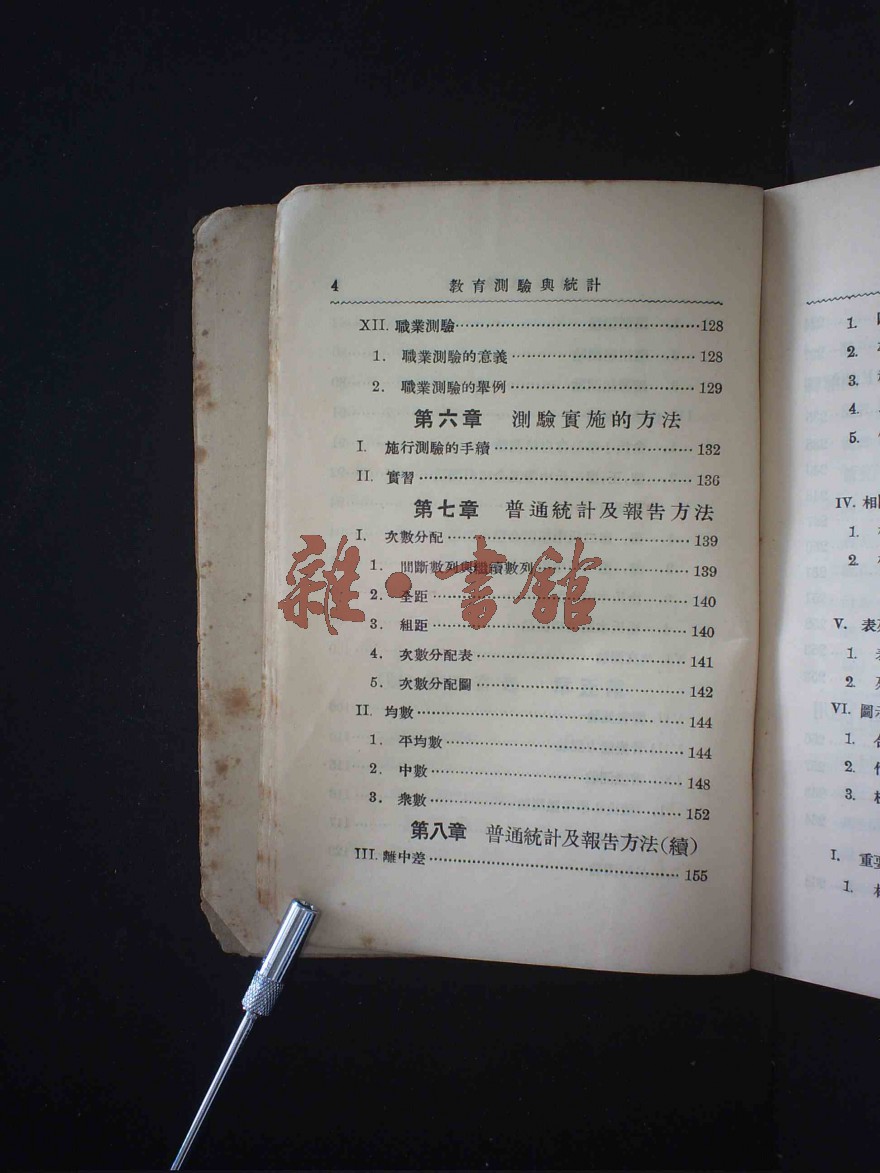 4 教育測驗與統計
XII. 職業測驗 128
1. 職業測驗的意義 128
2. 職業測驗的舉例 129
第六章 測驗實施的方法
I. 施行測驗的手續 132
II. 實習 136
第七章 普通統計及報告方法
I. 次數分配 139
1. 間斷數列與繼續數列 139
2. 全距 140
3. 組距 140
4. 次數分配表 141
5. 次數分配圖 142
II. 均數 144
1. 平均數 144
2. 中數 148
3. 衆數 152
第八章 普通統計及報告方法(續)
III. 離中差 155
雜·書館
1.
2.
3.
4.
5.
IV. 相
1.
2.
V. 表
1.
2.
VI. 圖
1.
2.
3.
I. 重要
1.